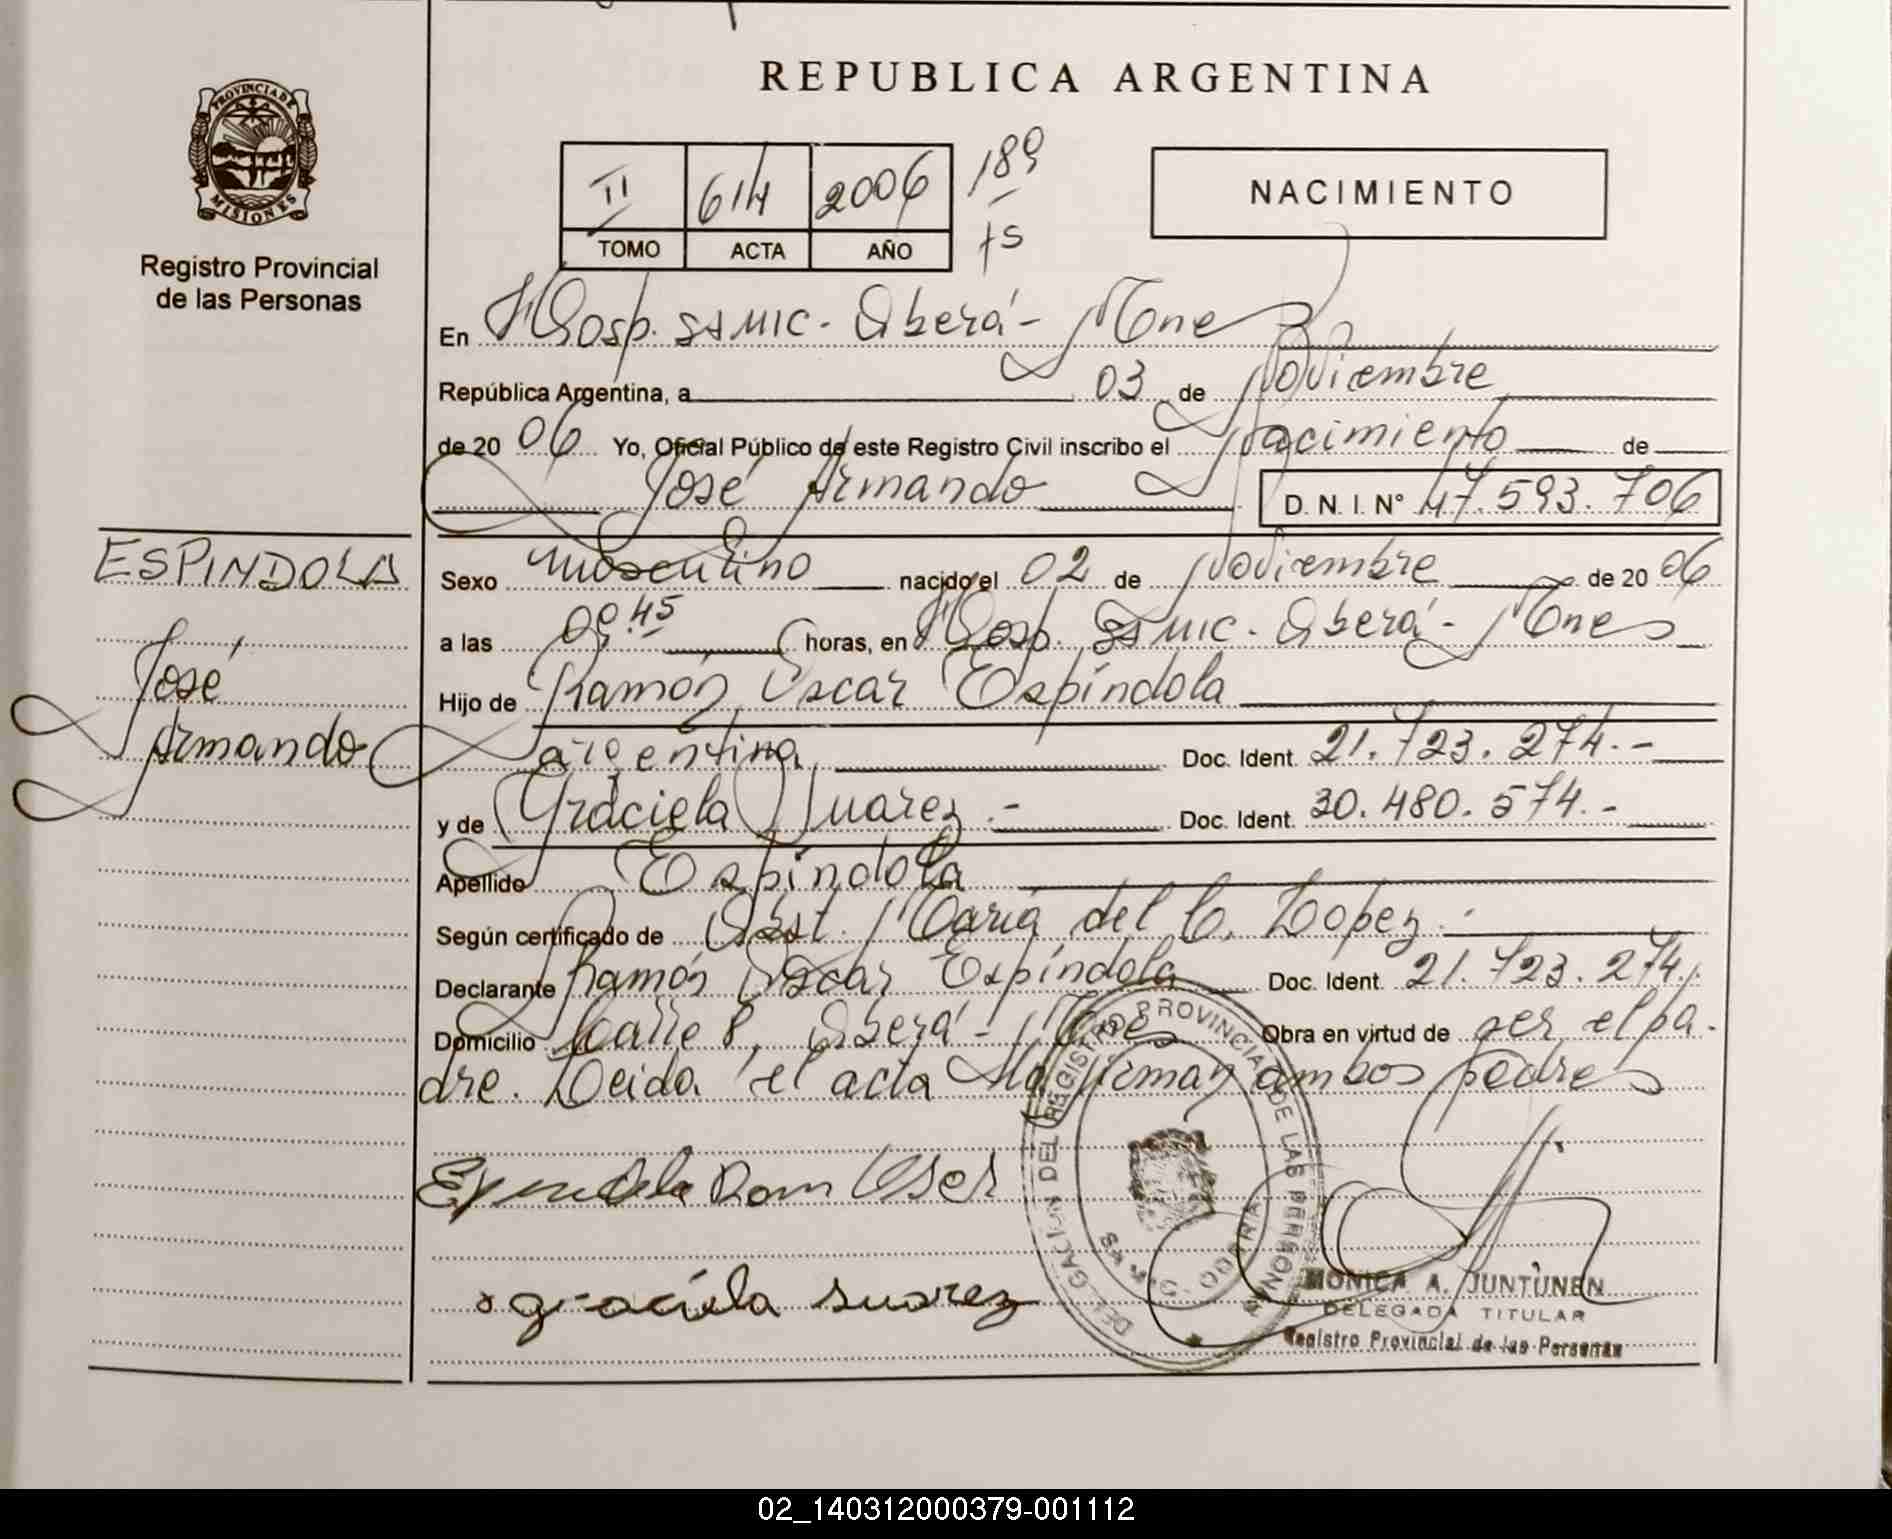 REPUBLICA ARGENTINA
PROVINCIA DE
MISIONES
Registro Provincial
de las Personas
II 614 2006 189
TOMO ACTA AÑO fs
NACIMIENTO
En Hosp. SAMIC. Oberá - Mnes
República Argentina, a 03 de Noviembre
de 20 06 Yo, Oficial Público de este Registro Civil inscribo el Nacimiento de
José Armando D. N. I. N° 47.593.706
ESPINDOLA
José
Armando
Sexo Masculino nacido el 02 de Noviembre de 20 06
a las 09.45 horas, en Hosp. SAMIC. Oberá - Mnes
Hijo de Ramón Oscar Espíndola
argentina Doc. Ident. 21.723.274.-
y de Graciela Suarez.- Doc. Ident. 30.480.574.-
Apellido Espíndola
Según certificado de Obst. María del C. Lopez.-
Declarante Ramón Oscar Espíndola Doc. Ident. 21.723.274.
Domicilio Calle 8, Oberá - Mnes Obra en virtud de ser el pa-
dre. Leida el acta la firman ambos padres
graciela suarez
DELEGACION DEL REGISTRO PROVINCIAL DE LAS PERSONAS
MONICA A. JUNTUNEN
DELEGADA TITULAR
Registro Provincial de las Personas
02_140312000379-001112